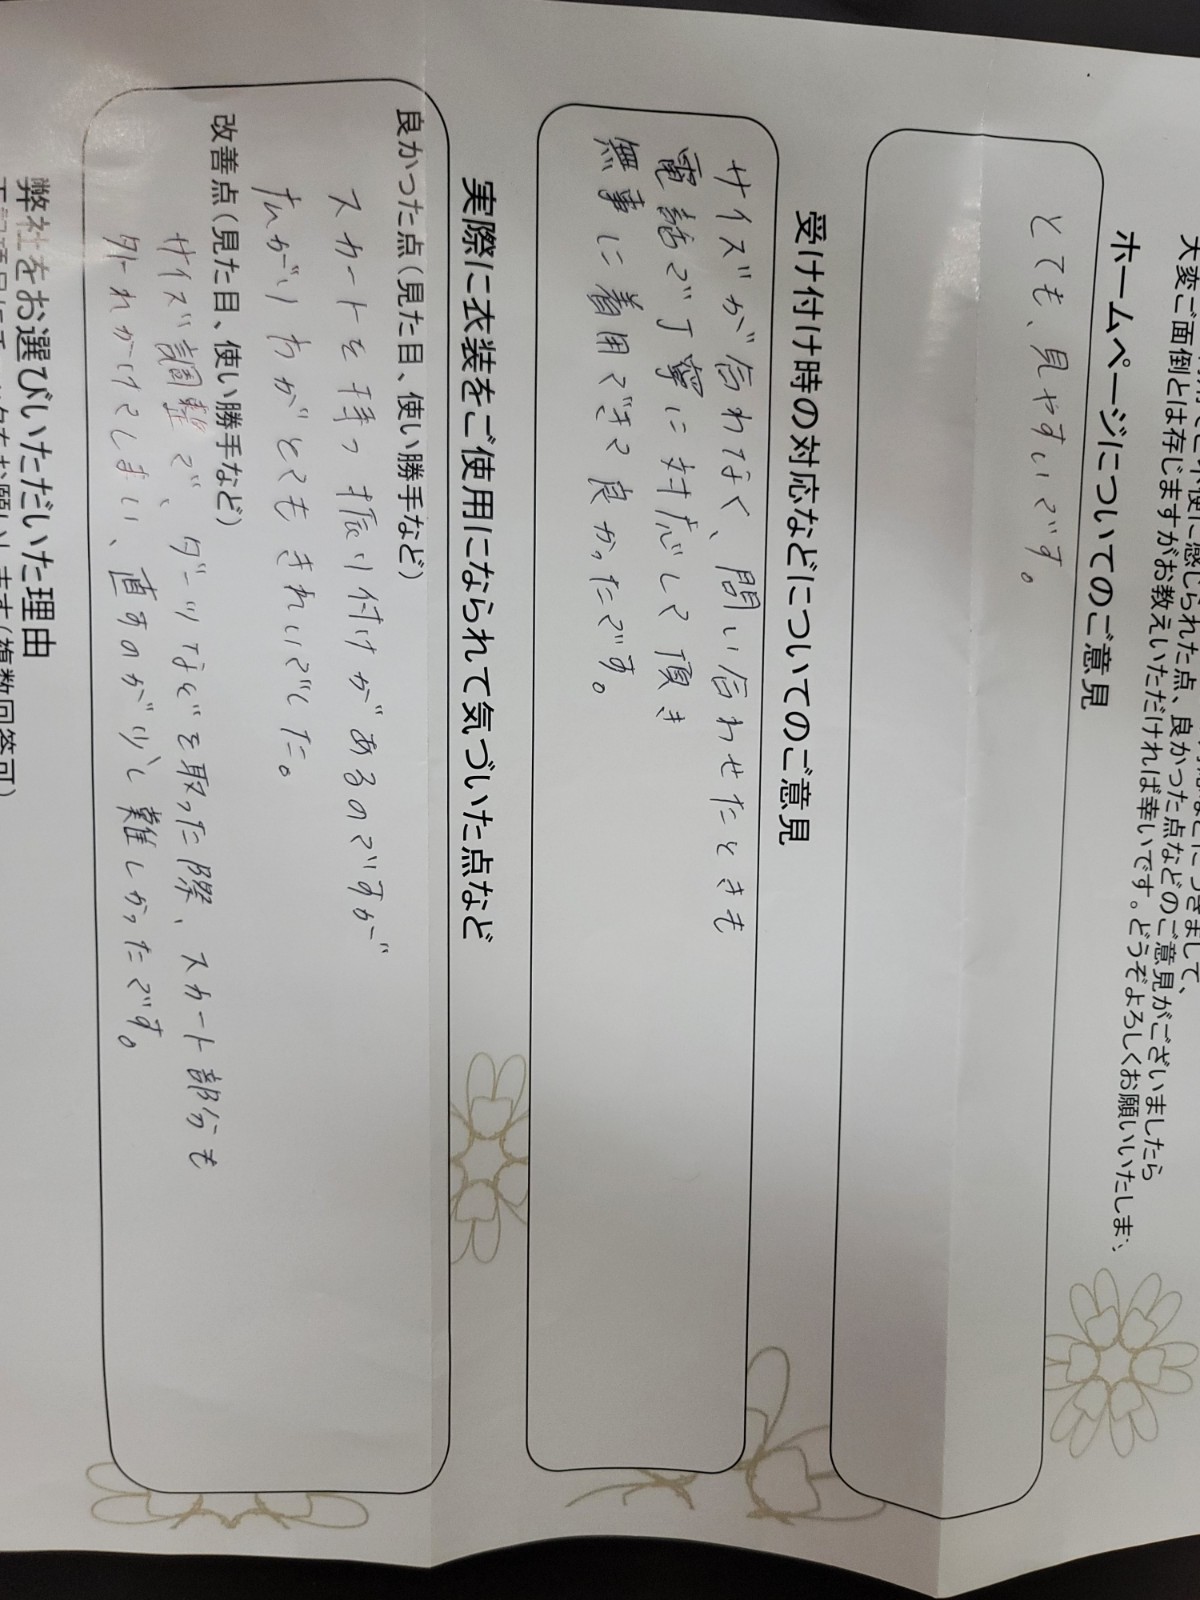 不便に感じられた点、良かった点などのご意見がございましたら
大変ご面倒とは存じますがお教えいただければ幸いです。どうぞよろしくお願いいたしま
ホームページについてのご意見
とても、見やすいです。
受け付け時の対応などについてのご意見
サイズが合わなく、問い合わせたときも
電話で丁寧に対応して頂き
無事に着用できて良かったです。
実際に衣装をご使用になられて気づいた点など
良かった点(見た目、使い勝手など)
スカートを持つ振り付けがあるのですが
広がりわがとてもきれいでした。
改善点(見た目、使い勝手など)
サイズ調整で、ダーツなどを取った際、スカート部分も
外れかけてしまい、直すのが少し難しかったです。
弊社をお選びいただいた理由
をお願いします(複数回答可)